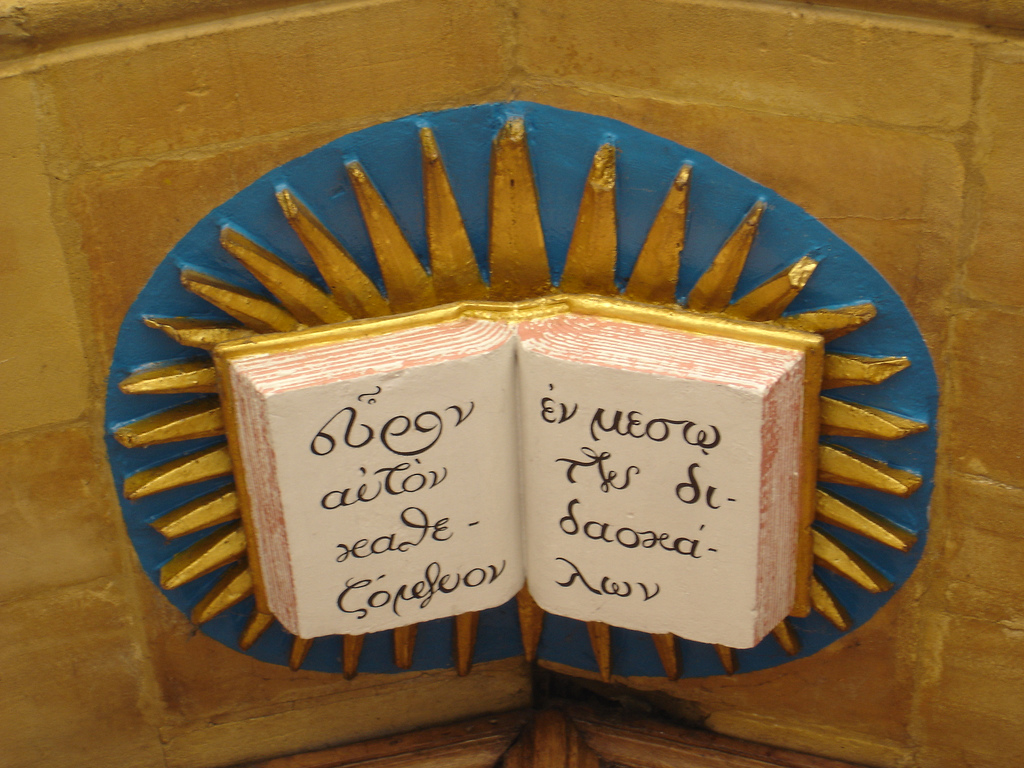 εὗρον
αὐτὸν
καθε-
ζόμενον
ἐν μεσῳ
τῆς δι-
δασκά-
λων